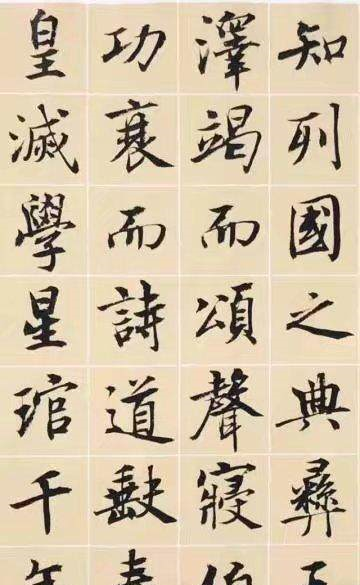 知列國之典彝王
澤竭而頌聲寢伯
功衰而詩道缺秦
皇滅學星琯千年